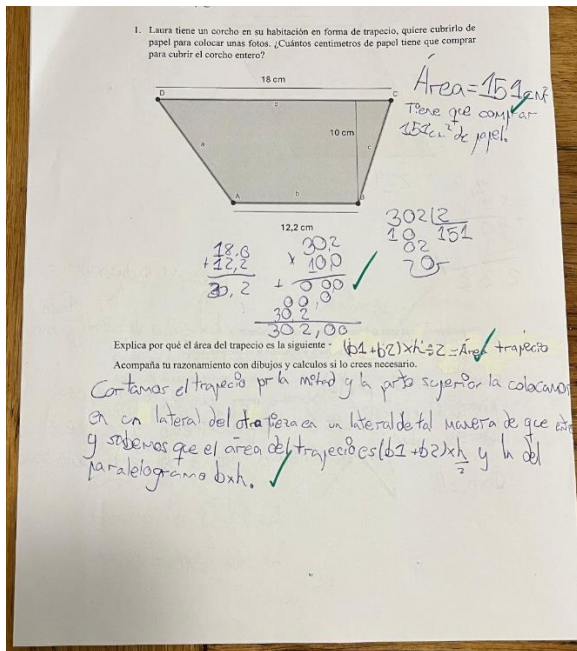 1. Laura tiene un corcho en su habitación en forma de trapecio, quiere cubrirlo de
papel para colocar unas fotos. ¿Cuántos centimetros de papel tiene que comprar
para cubrir el corcho entero?
Área = 151 cm²
Tiene que comprar
151 cm² de papel.
18 cm
D
C
10 cm
a
c
b
A
B
12,2 cm
302 | 2
10 151
02
0
18,0
+12,2
30,2
30,2
x 10,0
+ 0 00
00,0
30 2
302,00
Explica por qué el área del trapecio es la siguiente - (b1+b2)xh÷2=Área trapecio
Acompaña tu razonamiento con dibujos y calculos si lo crees necesario.
Cortamos el trapecio por la mitad y la parte superior la colocamos
en un lateral del otra pieza en un lateral de tal manera de que
y sabemos que el área del trapecio es (b1+b2)xh/2 y la del
paralelogramo bxh.